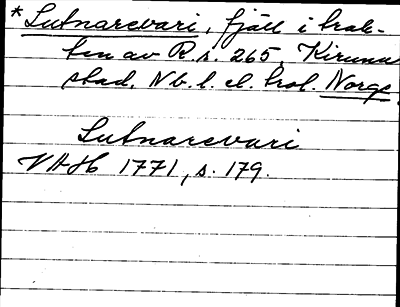 *Lutnarevari, fjäll i trak-
ten av R.s. 265, Kiruna
stad, Nb. l. el. trol. Norge.
Lutnarevari
VAH 1771, s. 179.